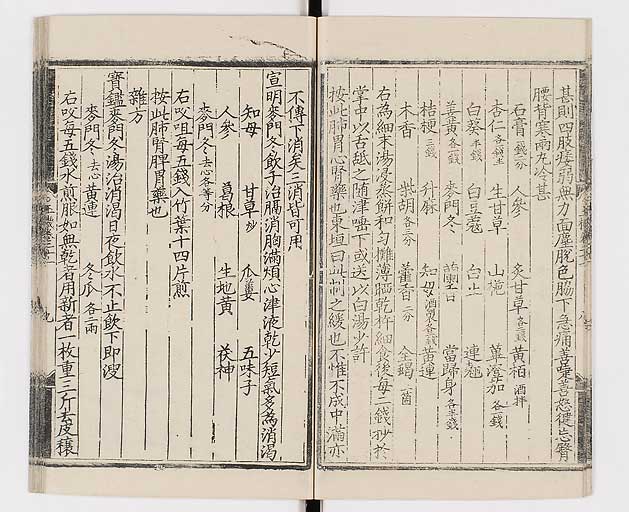 甚則四肢痿弱無力面塵脫色脇下急痛善嚏善怒健忘臀
腰背寒兩丸冷甚
石膏 人參 炙甘草 黃栢酒拌
杏仁 生甘草 山梔 蓽澄茄各一錢
白葵 白豆蔲 白芷 連翹
薑黃各一錢 麥門冬 當歸身
桔梗三錢 升麻 知母 黃連
木香 柴胡各三分 藿香二分 全蝎一箇
右為細末湯浸蒸餅和勻攤薄曬乾杵細食後每二錢抄於
掌中以舌䑛之隨津嚥下或送以白湯少許
按此肺胃心腎藥也東垣曰此制之緩也不惟不成中滿亦
不傳下消矣三消皆可用
宣明麥門冬飮子治膈消胸滿煩心津液乾少短氣多為消渴
知母 甘草炒 瓜蔞 五味子
人參 葛根 生地黃 茯神
麥門冬去心各等分
右㕮咀每五錢入竹葉十四片煎
按此肺腎脾胃藥也
雜方
寶鑑麥門冬湯治消渴日夜飮水不止飮下即溲
麥門冬去心 黃連 冬瓜各二兩
右㕮每五錢水煎服如無乾者用新者一枚重三斤去皮穰